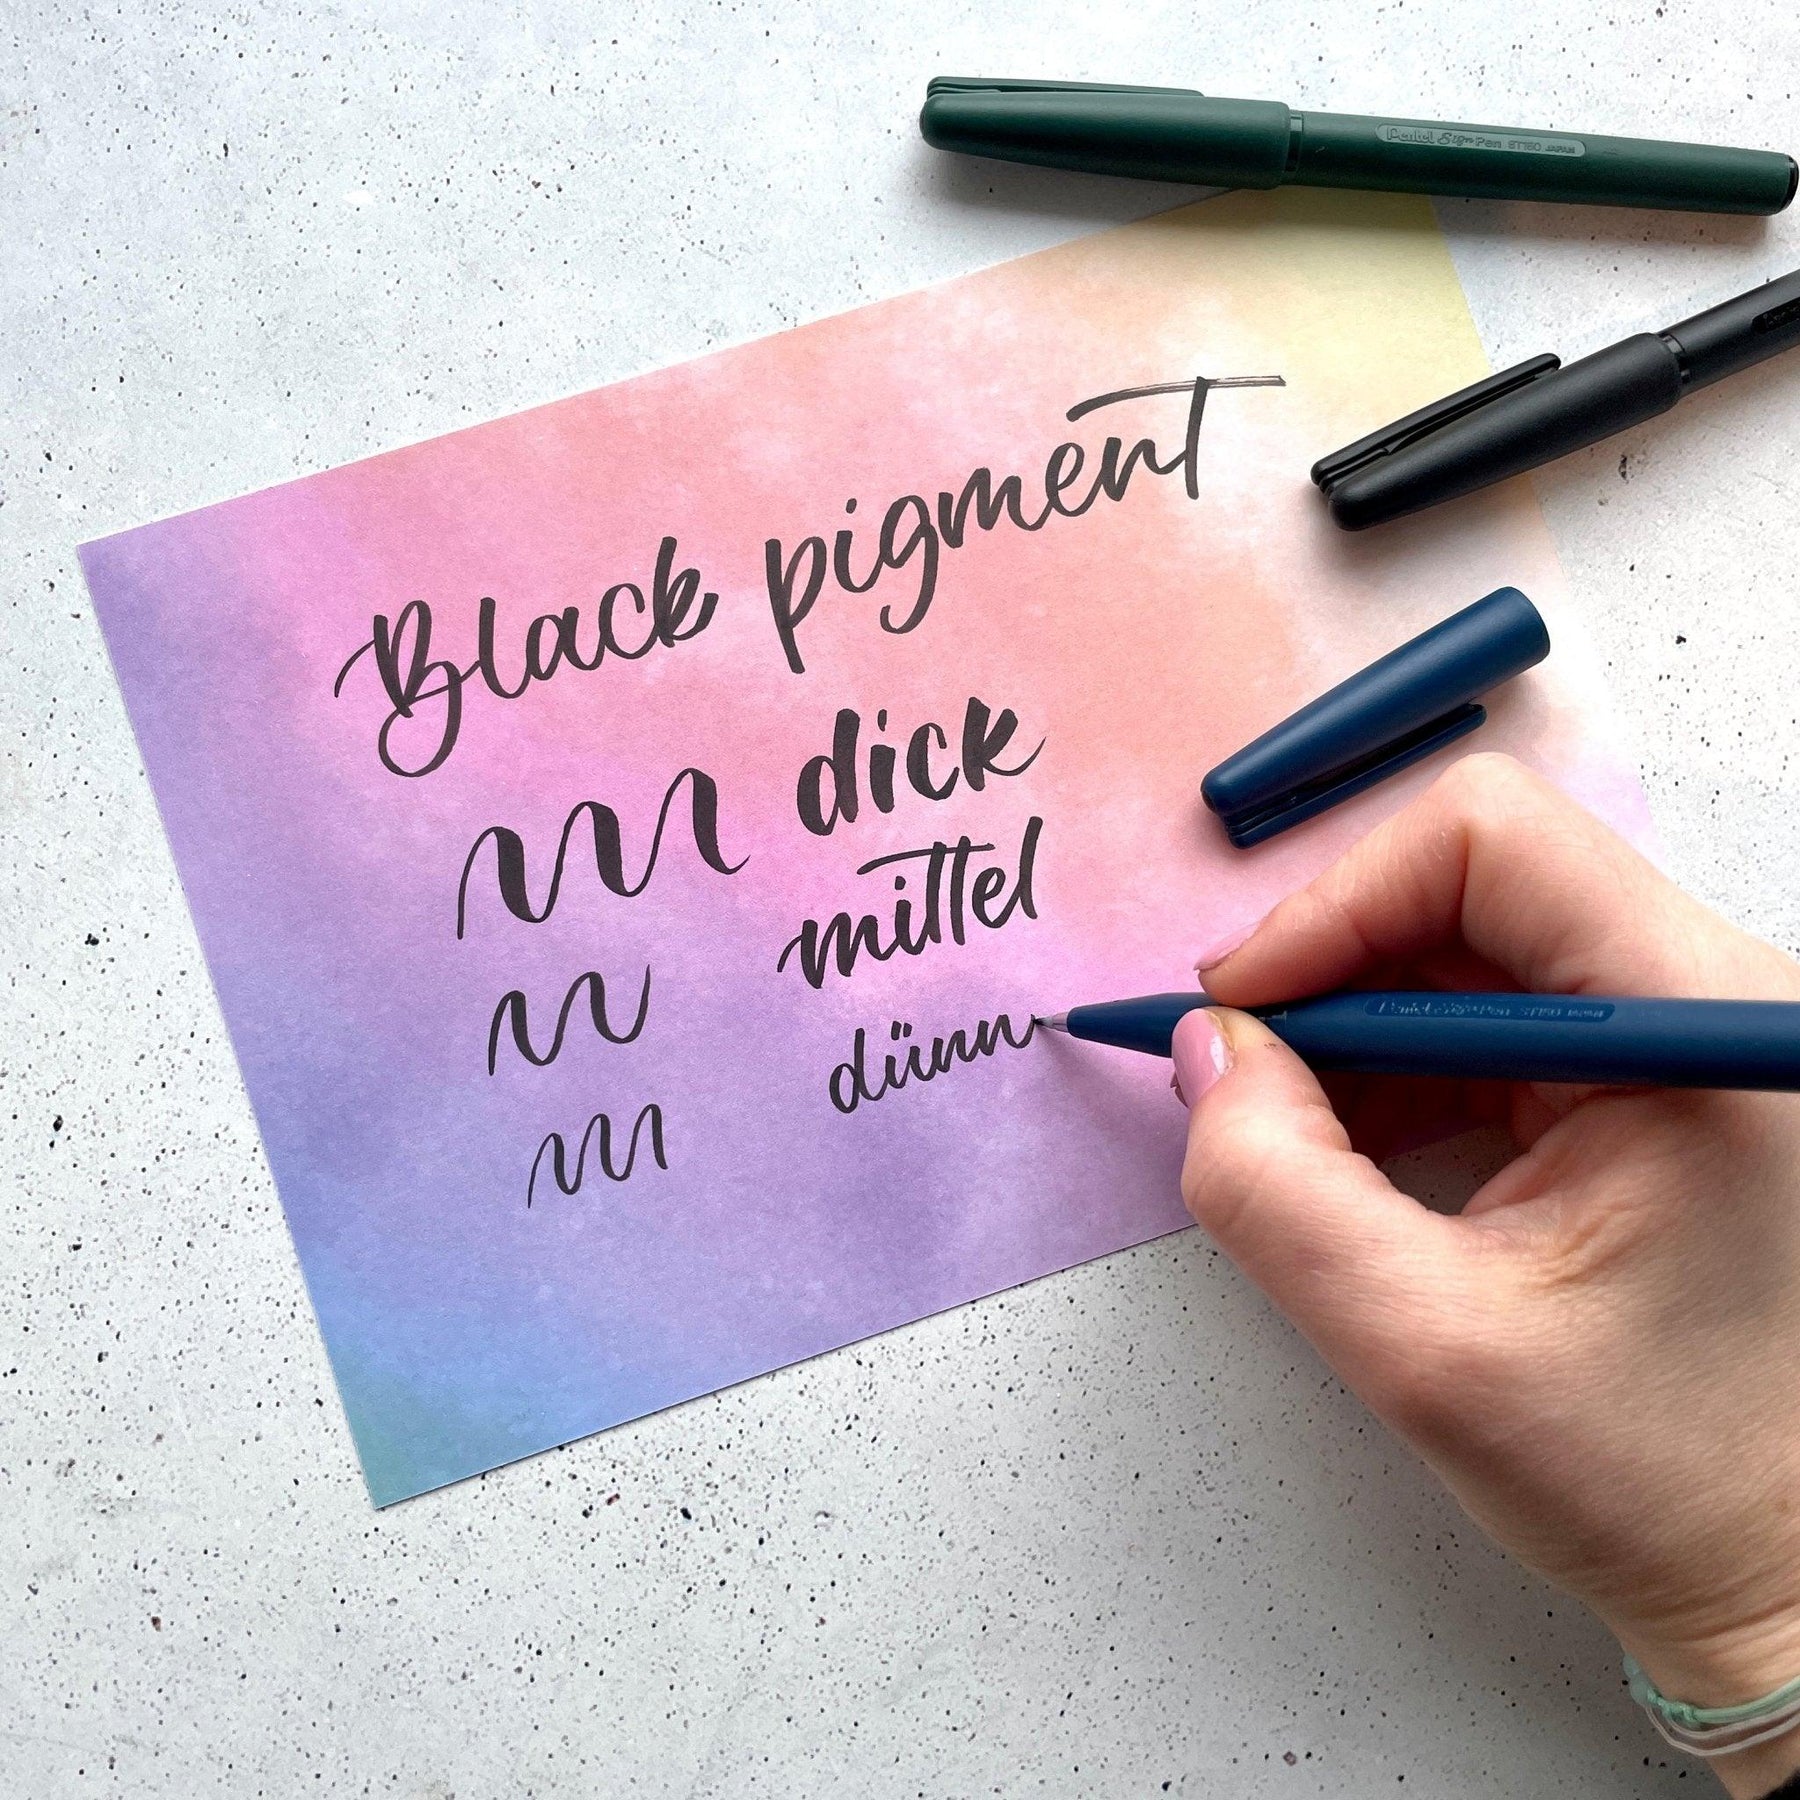 Pentel Sign Pen ST150 JAPAN
Black pigment
dick
mittel
dünn
Pentel Sign Pen ST150 JAPAN